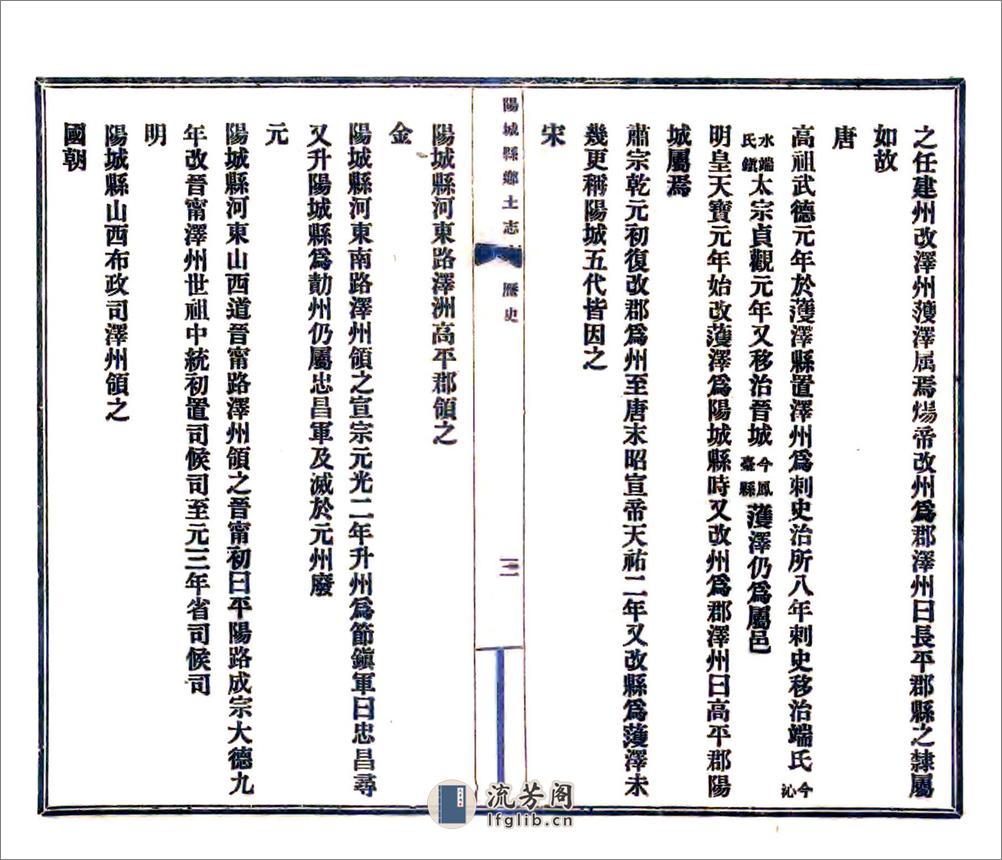 之任建州改澤州濩澤属焉煬帝改州爲郡澤州曰長平郡縣之隸屬
如故
唐
高祖武德元年於濩澤縣置澤州爲刺史治所八年刺史移治端氏今沁
水端氏鎮太宗貞觀元年又移治晉城今鳳臺縣濩澤仍爲屬邑
明皇天寶元年始改濩澤爲陽城縣時又改州爲郡澤州曰高平郡陽
城屬焉
肅宗乾元初復改郡爲州至唐末昭宣帝天祐二年又改縣爲濩澤未
幾更稱陽城五代皆因之
宋
陽城縣鄉土志
歷史
三
陽城縣河東路澤洲高平郡領之
金
陽城縣河東南路澤州領之宣宗元光二年升州爲節鎭軍曰忠昌尋
又升陽城縣爲勣州仍屬忠昌軍及滅於元州廢
元
陽城縣河東山西道晉甯路澤州領之晉甯初曰平陽路成宗大德九
年改晉甯澤州世祖中統初置司候司至元三年省司候司
明
陽城縣山西布政司澤州領之
國朝
流芳阁
lfglib.cn